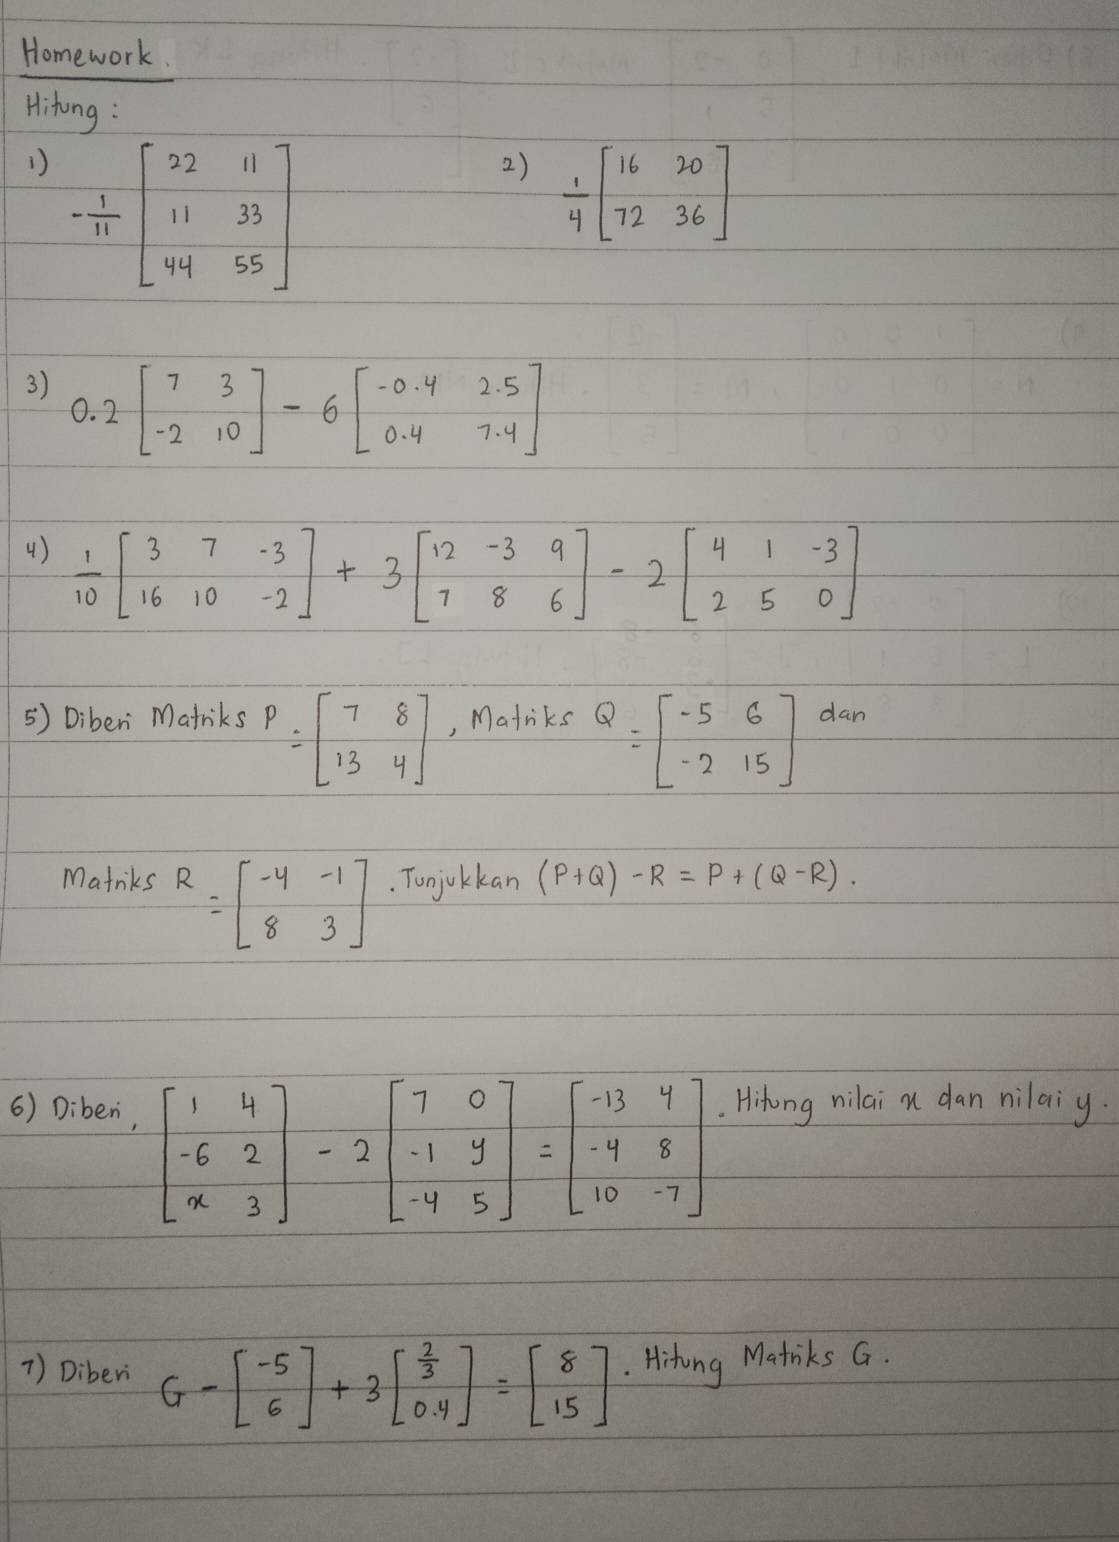 Homework.
Hitung :
1) -1/11 [22 11; 11 33; 44 55] 2) 1/4 [16 20; 72 36]
3) 0.2 [7 3; -2 10] - 6 [-0.4 2.5; 0.4 7.4]
4) 1/10 [3 7 -3; 16 10 -2] + 3 [12 -3 9; 7 8 6] - 2 [4 1 -3; 2 5 0]
5) Diberi Matriks P = [7 8; 13 4], Matriks Q = [-5 6; -2 15] dan
Matriks R = [-4 -1; 8 3]. Tunjukkan (P+Q) - R = P + (Q - R).
6) Diberi, [1 4; -6 2; x 3] - 2 [7 0; -1 y; -4 5] = [-13 4; -4 8; 10 -7]. Hitung nilai x dan nilai y.
7) Diberi G - [-5; 6] + 3 [2/3; 0.4] = [8; 15]. Hitung Matriks G.